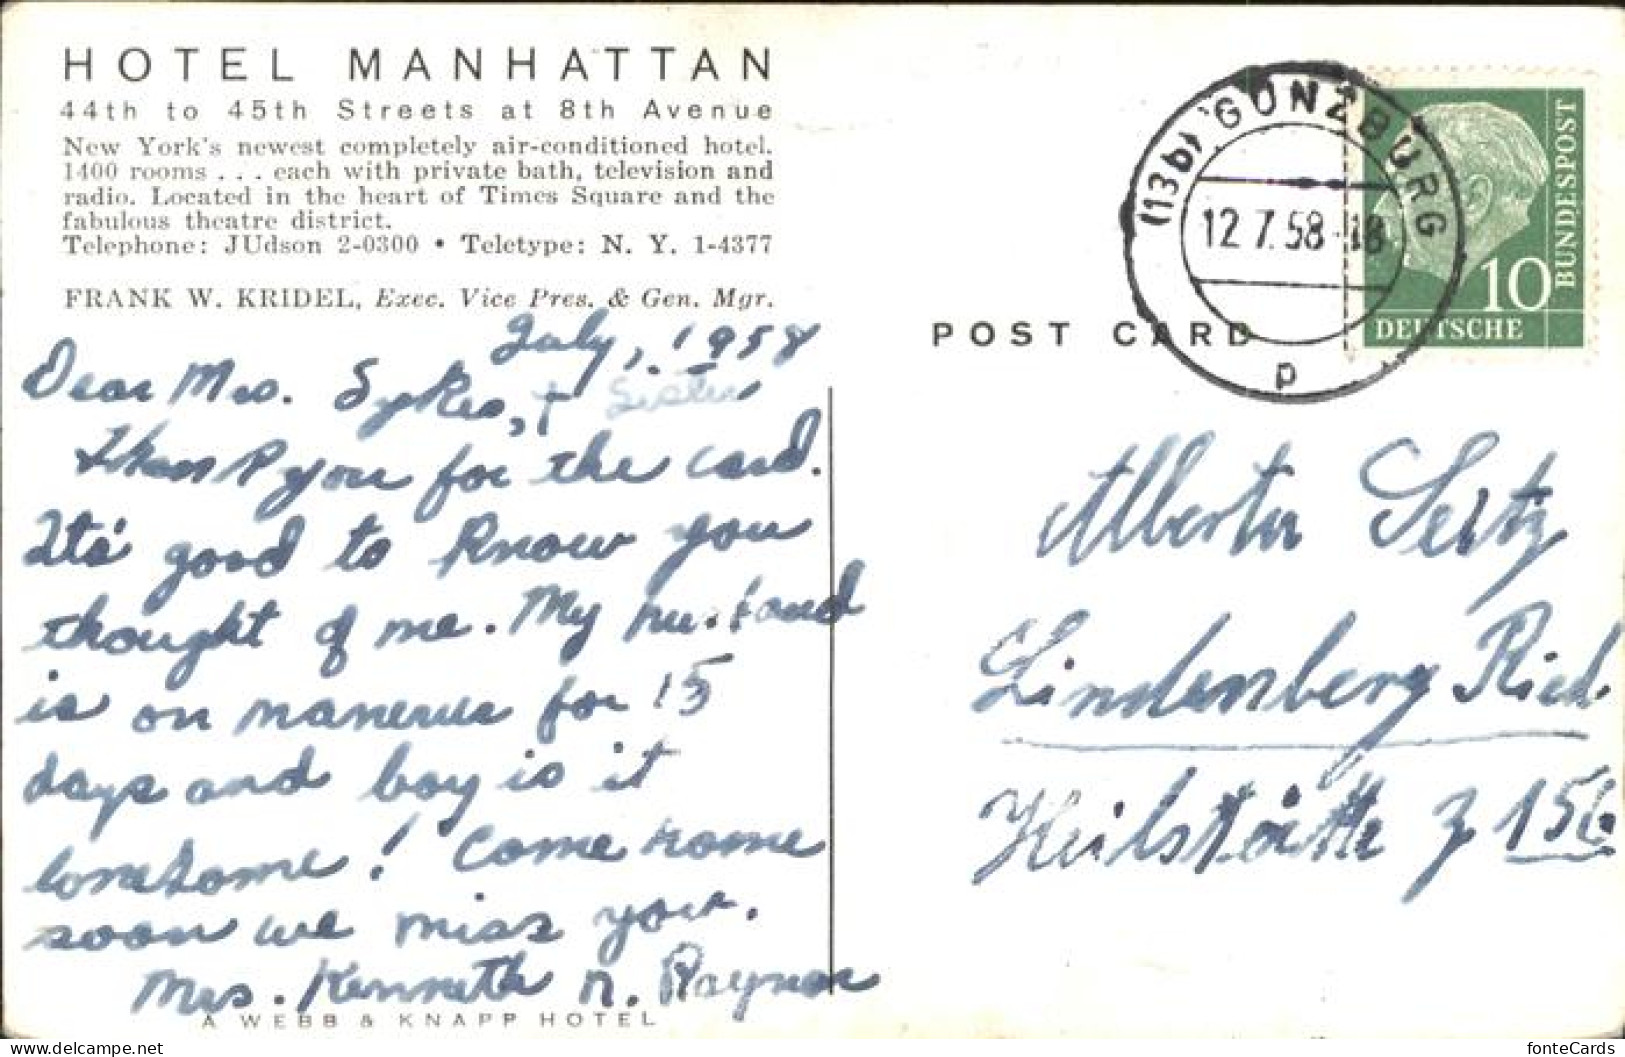 HOTEL MANHATTAN
44th to 45th Streets at 8th Avenue
New York's newest completely air-conditioned hotel.
1400 rooms . . . each with private bath, television and
radio. Located in the heart of Times Square and the
fabulous theatre district.
Telephone: JUdson 2-0300 • Teletype: N. Y. 1-4377
FRANK W. KRIDEL, Exec. Vice Pres. & Gen. Mgr.
July, 1958
Dear Mrs. Sykes, + Sister,
Thank you for the card.
Its good to know you
thought of me. My husband
is on manerves for 15
days and boy is it
lonesome! Come home
soon we miss you.
Mrs. Kenneth R. Raynor
A WEBB & KNAPP HOTEL
POST CARD
(13b) GÜNZBURG
12.7.58-18
p
DEUTSCHE
BUNDESPOST
10
Alberta Seitz
Lindenberg Ried.
Heilstätte Z 156
fonteCards